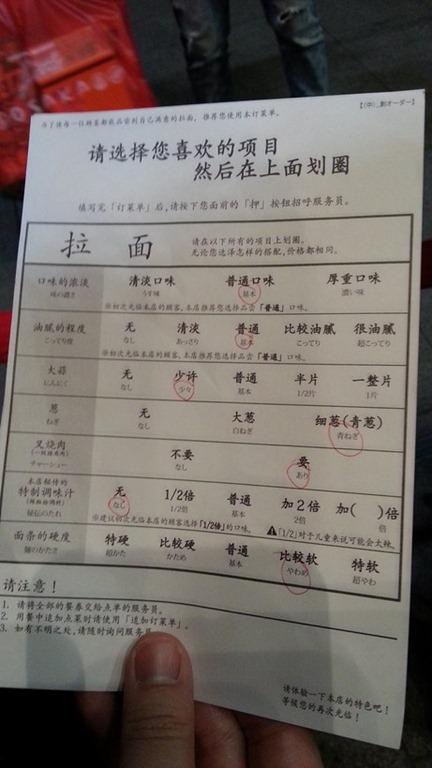 【(中)_割オーダー】
为了使每一位顾客都能品尝到自己满意的拉面，推荐您使用本订菜单。
请选择您喜欢的项目
然后在上面划圈
填写完「订菜单」后,请按下您面前的「押」按钮招呼服务员。
拉 面
请在以下所有的项目上划圈。
无论您选泽怎样的搭配,价格都相同。
口味的浓淡 清淡口味 普通口味 厚重口味
味の濃さ うす味 基本 濃い味
※初次光临本店的顾客,本店推荐您选择品尝「普通」口味。
油腻的程度 无 清淡 普通 比较油腻 很油腻
こってり度 なし あっさり 基本 こってり 超こってり
※初次光临本店的顾客,本店推荐您选择品尝「普通」口味。
大蒜 无 少许 普通 半片 一整片
にんにく なし 少々 基本 1/2片 1片
葱 无 大葱 细葱(青葱)
ねぎ なし 白ねぎ 青ねぎ
叉烧肉 不要 要
チャーシュー なし あり
本店秘传的
特制调味汁 无 1/2倍 普通 加2倍 加( )倍
秘伝のたれ なし 1/2倍 基本 2倍 倍
※建议初次光临本店的顾客选择「1/2倍」的口味。
「1/2」对于儿童来说可能会太辣。
面条的硬度 特硬 比较硬 普通 比较软 特软
麺のかたさ 超かた かため 基本 やわめ 超やわ
请注意！
1. 请将全部的餐券交给点单的服务员。
2. 用餐中追加点菜时请使用「追加订菜单」。
3. 如有不明之处,请随时询问服务员
请体验一下本店的特色吧！
等候您的再次光临！